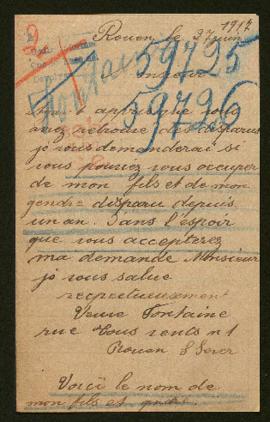 Rouen le 27 juin 1917
59725
Fontaine
Monsieur
59726
appris que vous
avez retrouvé des disparus
je vous demanderai si
vous pouvez vous occuper
de mon fils et de mon
gendre disparu depuis
un an. Dans l'espoir
que vous accepterez
ma demande Monsieur
je vous salue
respectueusement
Veuve Fontaine
rue tous vents n 1
Rouen S Sever
Voici le nom de
mon fils et gendre